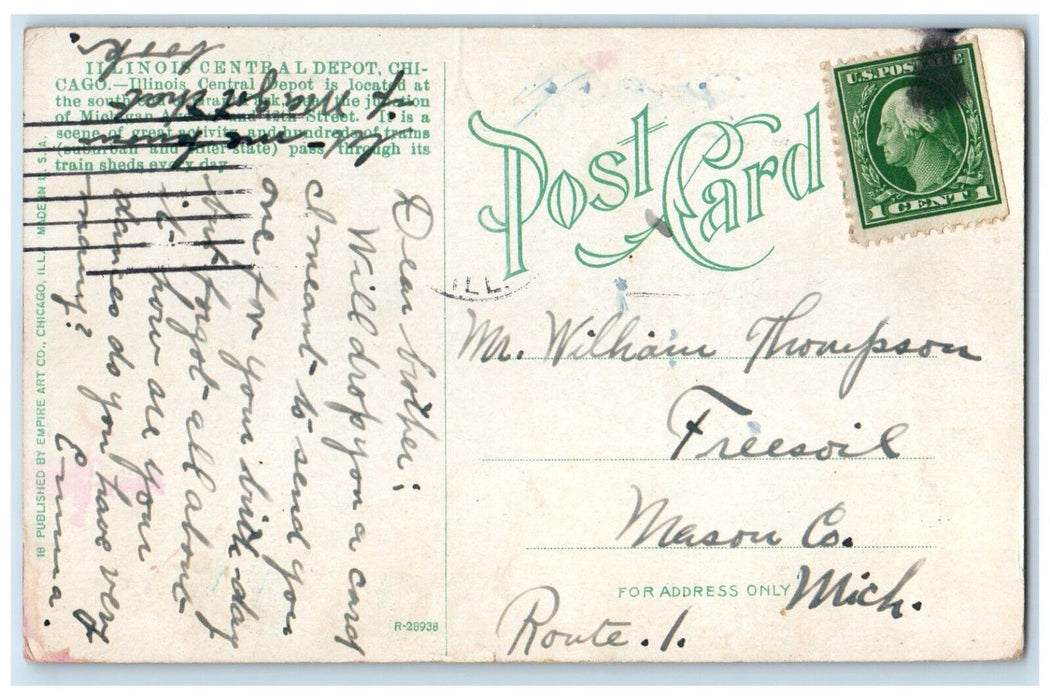 ILLINOIS CENTRAL DEPOT, CHI-
CAGO.—Illinois Central Depot is located at
the south end of Grant Park, near the junction
of Michigan Avenue and 12th Street. It is a
scene of great activity and hundreds of trains
(suburban and inter-state) pass through its
train sheds every day.
18 PUBLISHED BY EMPIRE ART CO., CHICAGO, ILL. MADE IN U. S. A.
Post Card
U.S. POSTAGE
1 CENT 1
ILL.
Dear brother;
Will drop you a card
I meant to send you
one for your birth-day
but forgot all about
it - how are your
dances do you have very
many?
Emma.
Mr. William Thompson
Freesoil
Mason Co.
Mich.
Route. 1.
FOR ADDRESS ONLY
R-26938